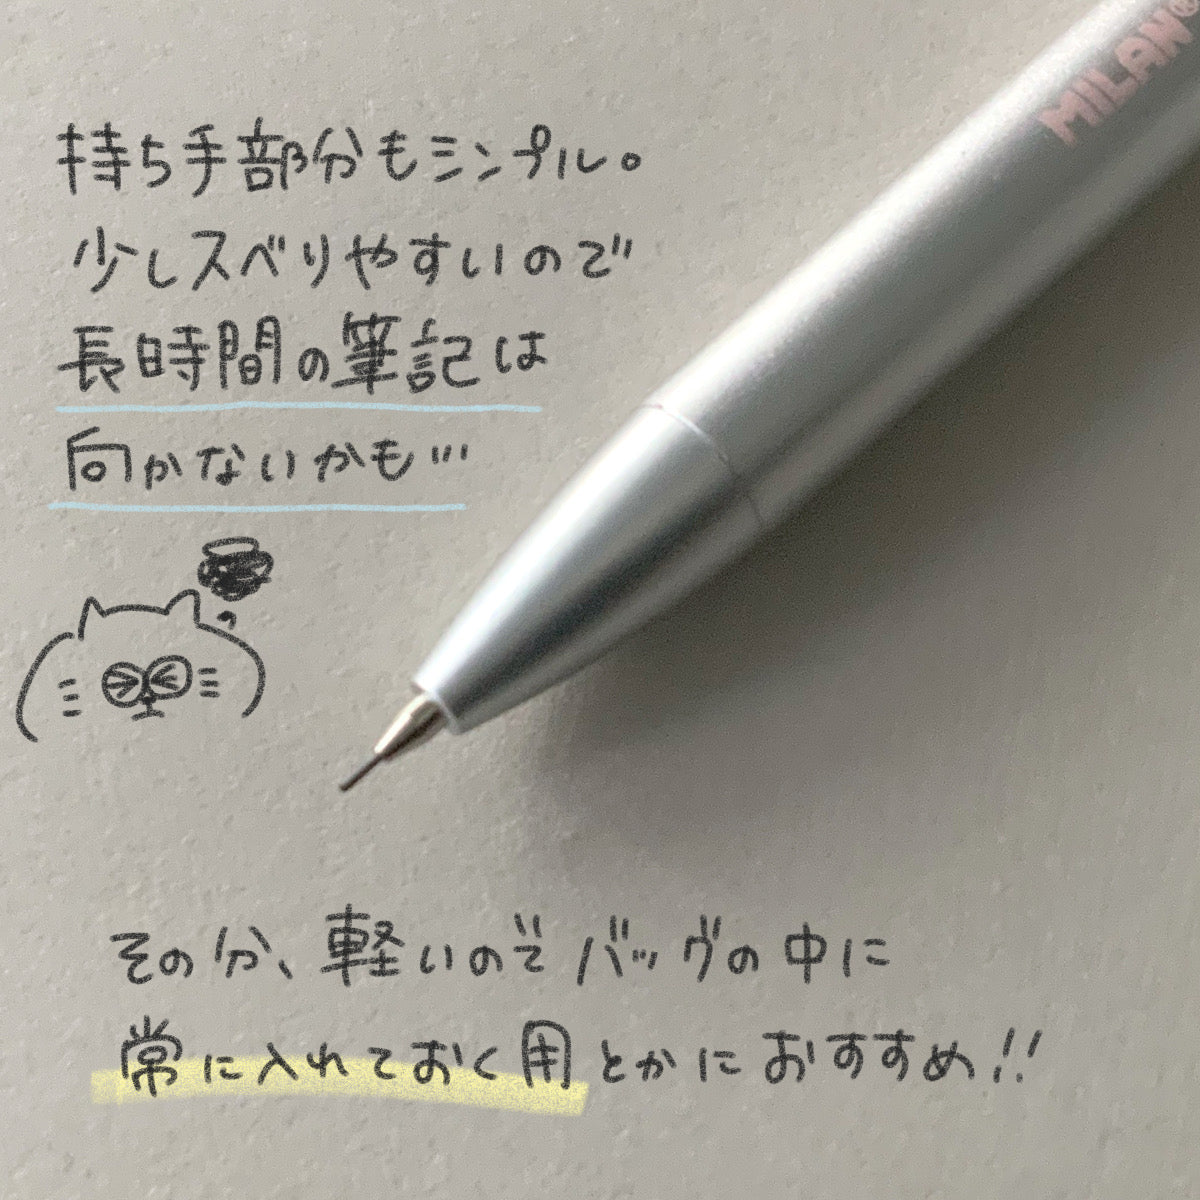 MILAN®
持ち手部分もシンプル。
少しスベりやすいので
長時間の筆記は
向かないかも…
その分、軽いのでバッグの中に
常に入れておく用とかにおすすめ!!